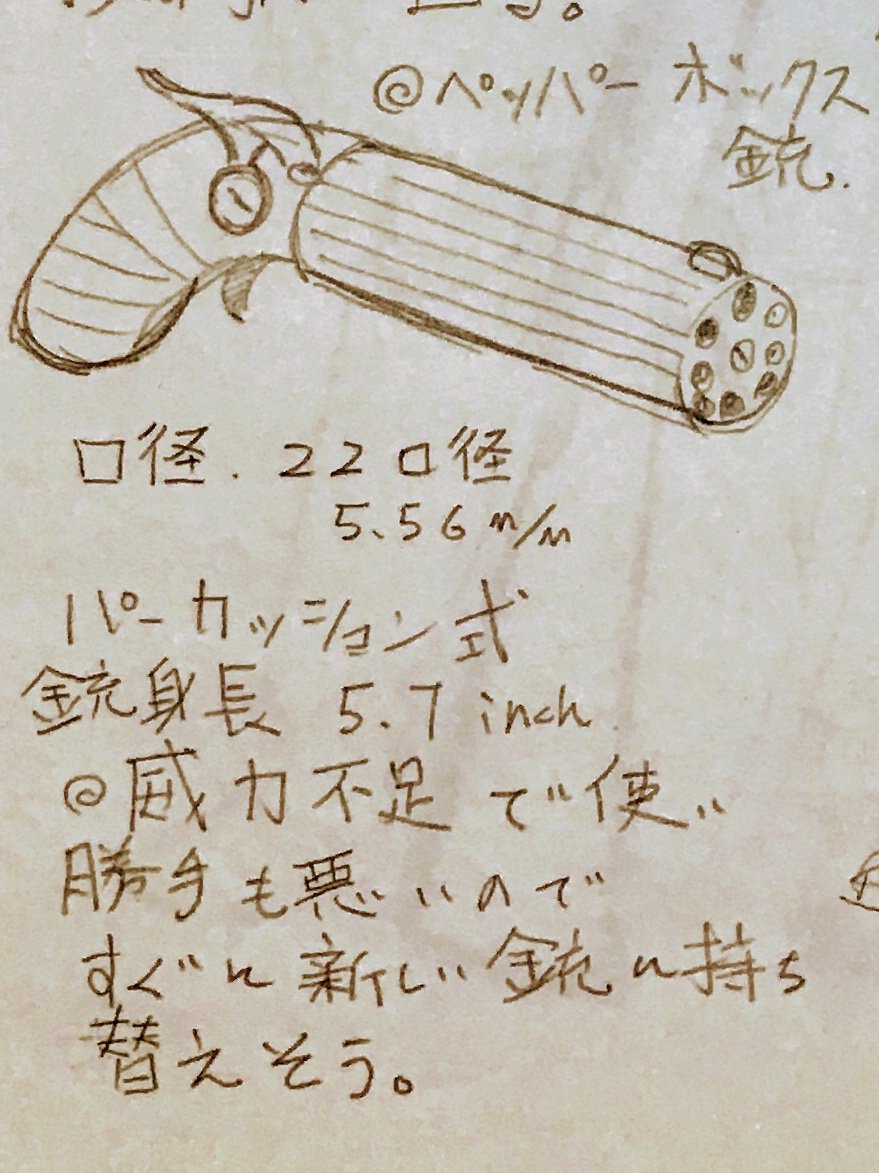 ◎ペッパーボックス
銃.
口径.22口径
5.56m/m
パーカッション式
銃身長 5.7 inch
◎威力不足で使い
勝手も悪いので
すぐに新しい銃に持ち
替えそう。